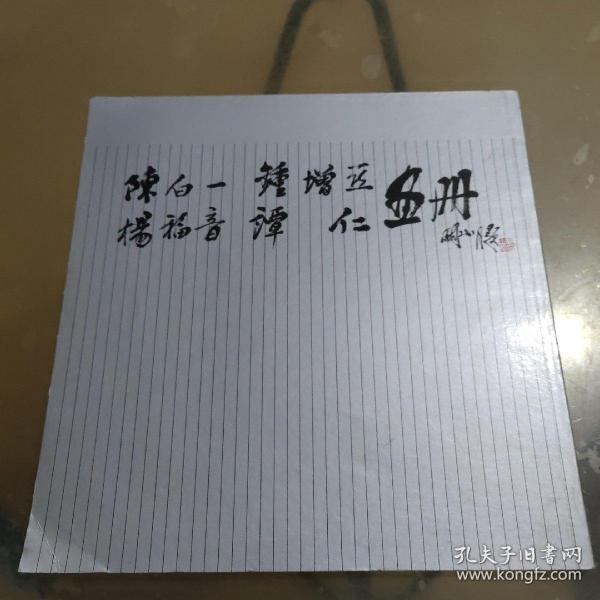 陳白一 鍾增亞 畫册
楊福音 譚 仁
孔夫子旧書网
www.kongfz.com